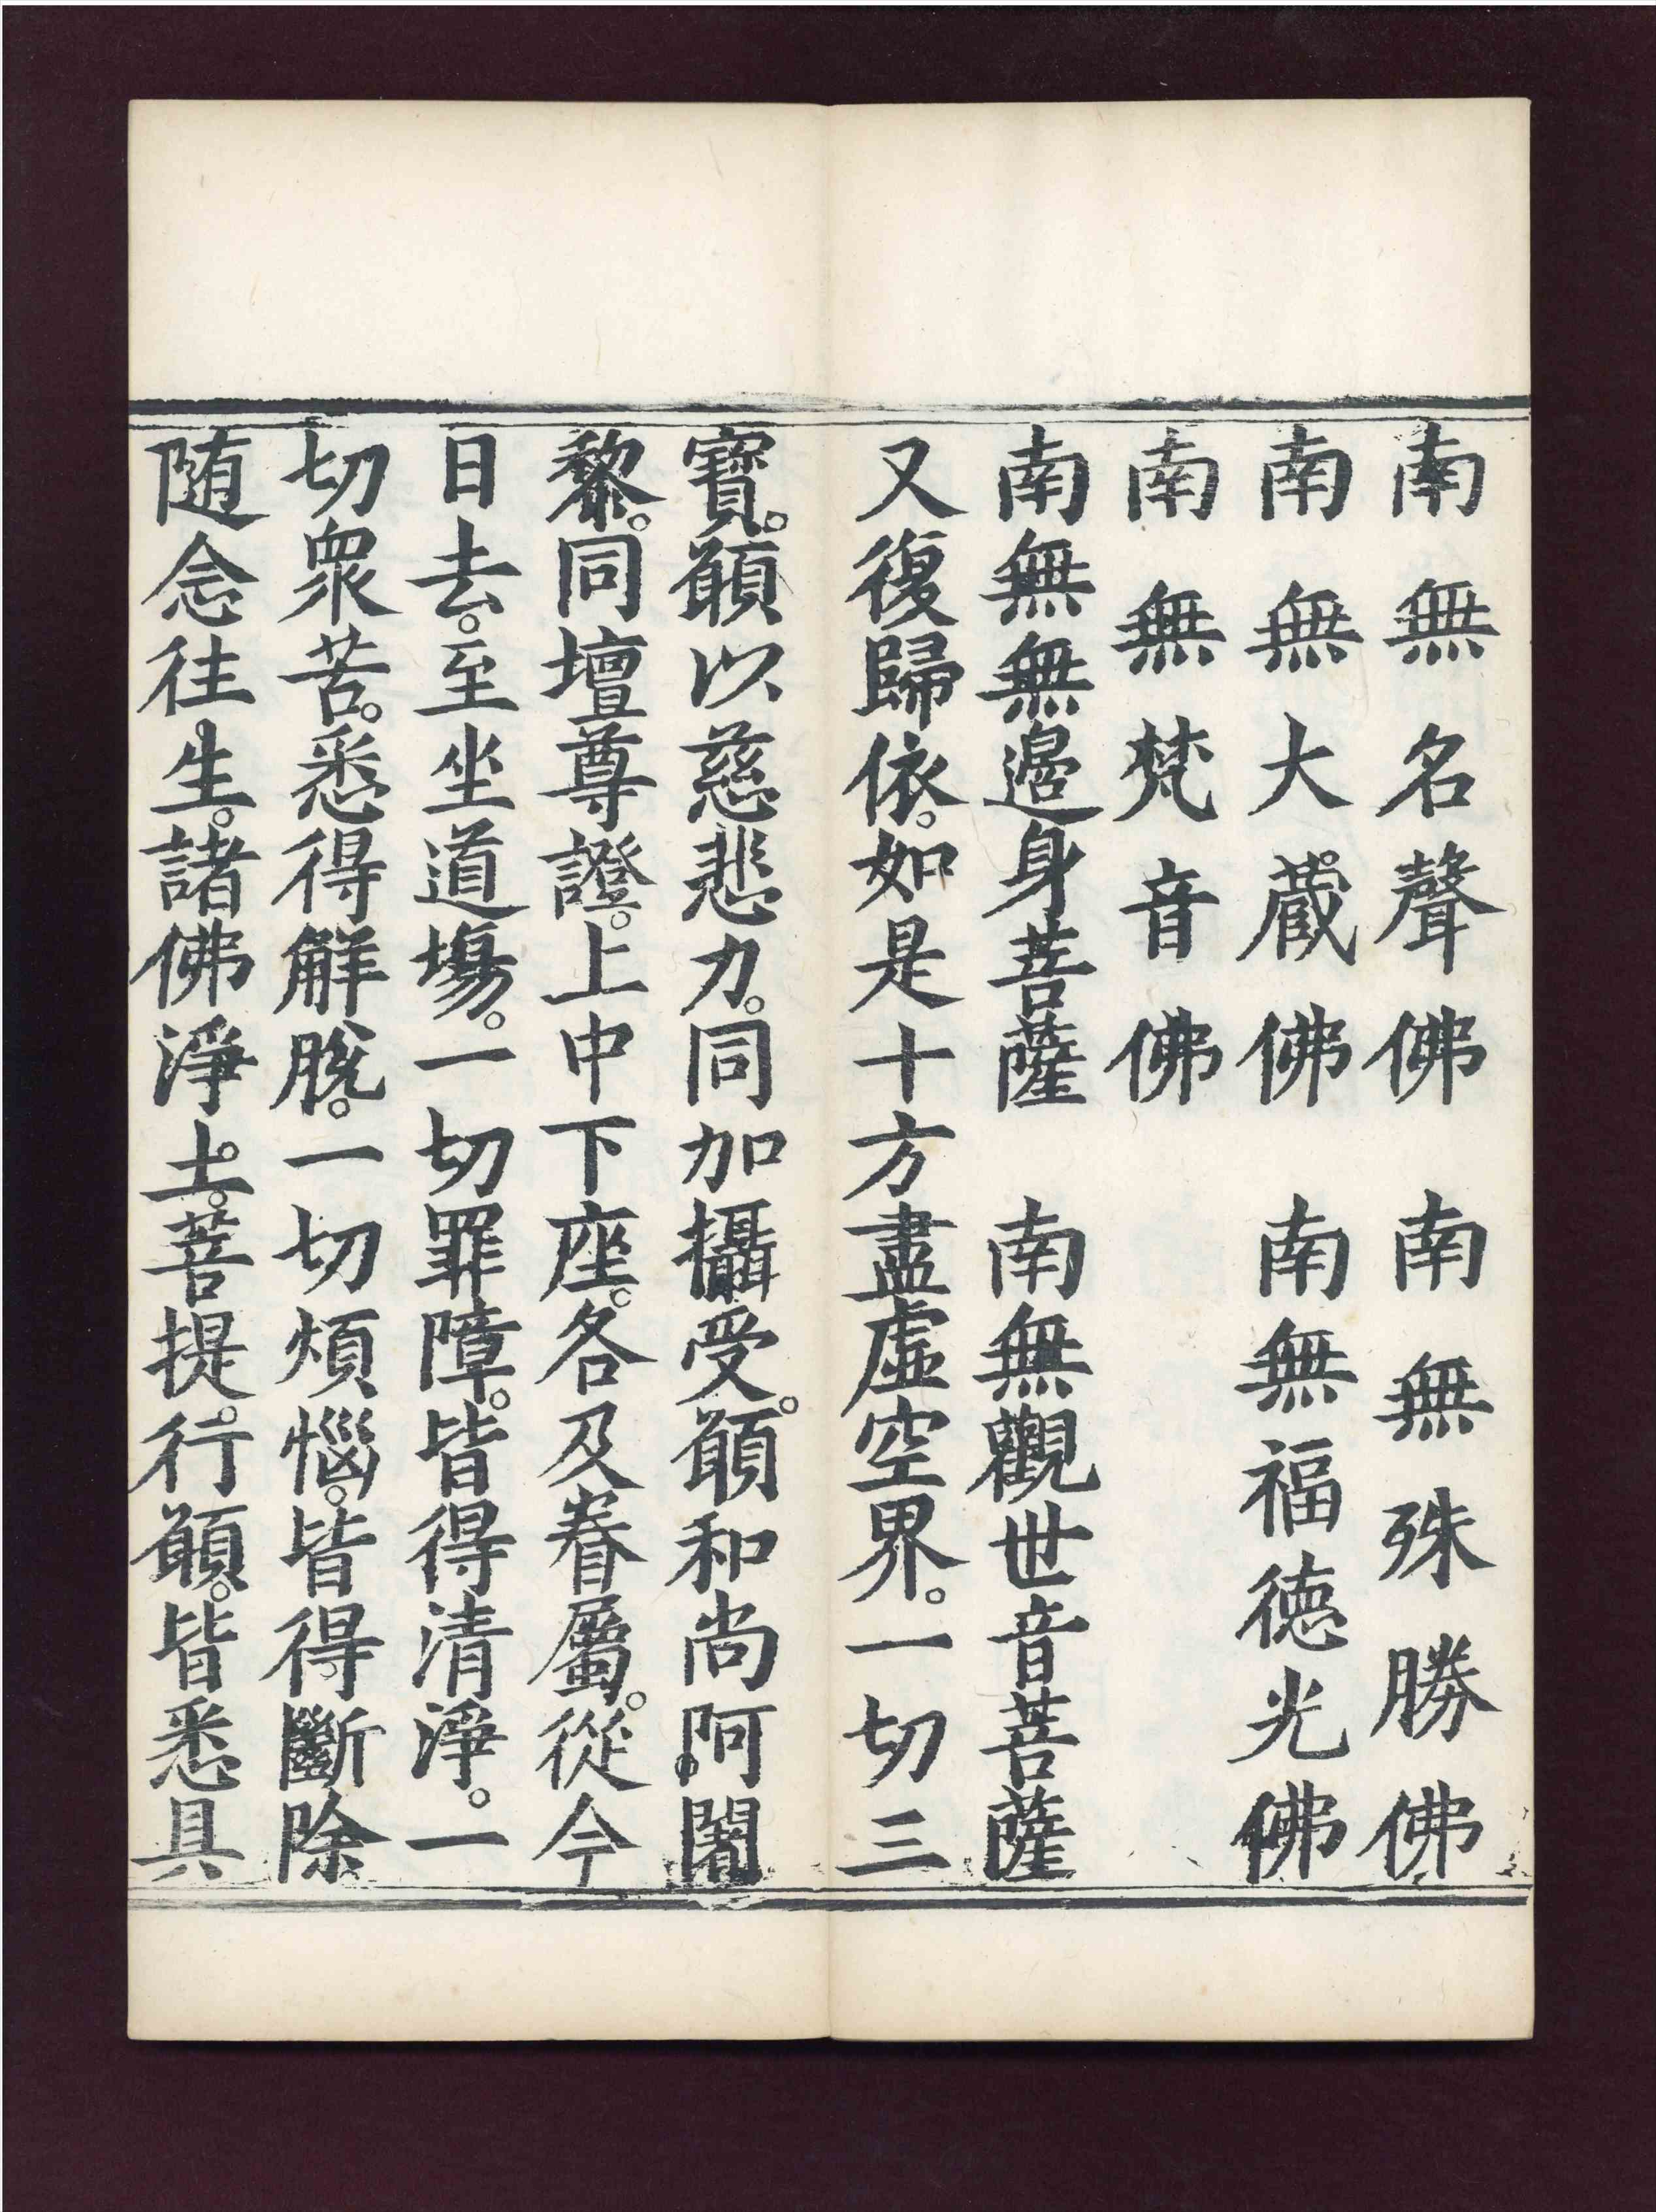 南無名聲佛　南無殊勝佛
南無大蔵佛　南無福德光佛
南無梵音佛
南無無邊身菩薩　南無觀世音菩薩
又復歸依。如是十方盡虛空界。一切三
寶。願以慈悲力。同加攝受。願和尚阿闍
黎。同壇尊證。上中下座。各及眷屬。從今
日去。至坐道場。一切罪障。皆得清淨。一
切眾苦。悉得解脫。一切煩惱。皆得斷除
随念往生。諸佛淨土。菩提行願。皆悉具